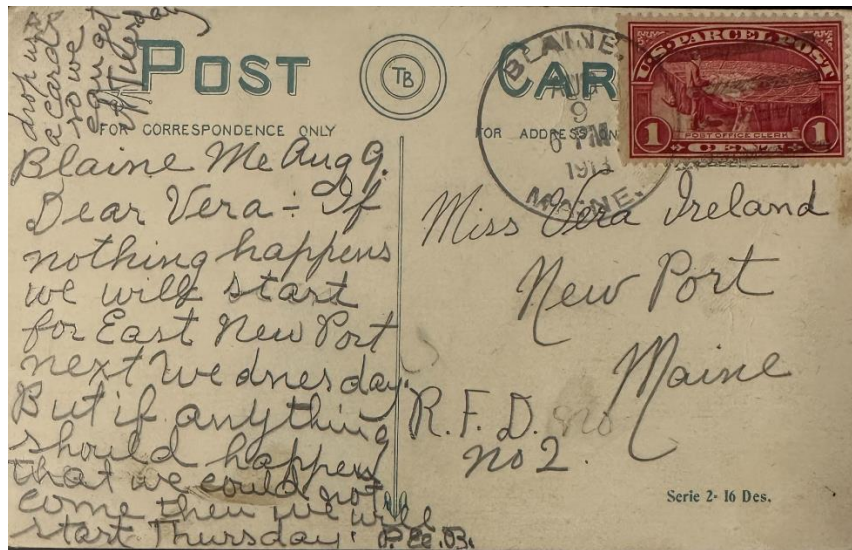 drop us
a card
so we
can get
it Tuesday
POST CARD
TB
FOR CORRESPONDENCE ONLY
FOR ADDRESS ON
BLAINE,
AUG
9
6 PM
1913
MAINE.
U.S. PARCEL POST
POST OFFICE CLERK
1 CENT 1
Blaine Me Aug 9.
Dear Vera - If
nothing happens
we will start
for East New Port
next Wednesday.
But if anything
should happen
that we could not
come then we will
start Thursday.
Miss Vera Ireland
New Port
Maine
R. F. D. no
no 2.
Serie 2- 16 Des.